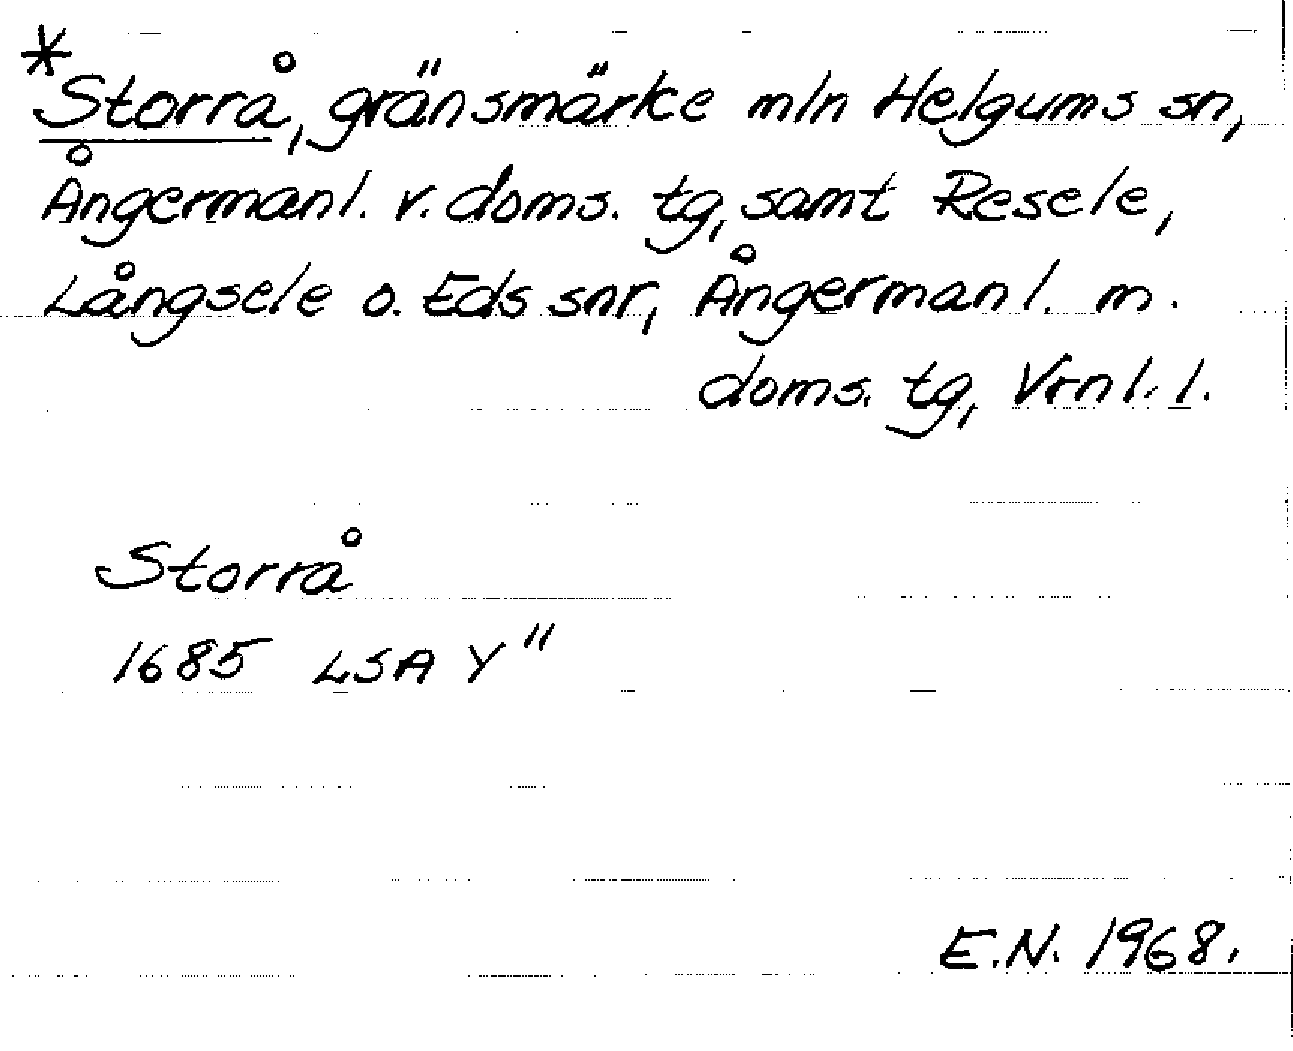 *Storrå, gränsmärke mln Helgums sn,
Ångermanl. v. doms. tg, samt Resele,
Långsele o. Eds snr, Ångermanl. m.
doms. tg, Vrnl. l.
Storrå
1685 LSA Y"
E.N. 1968.